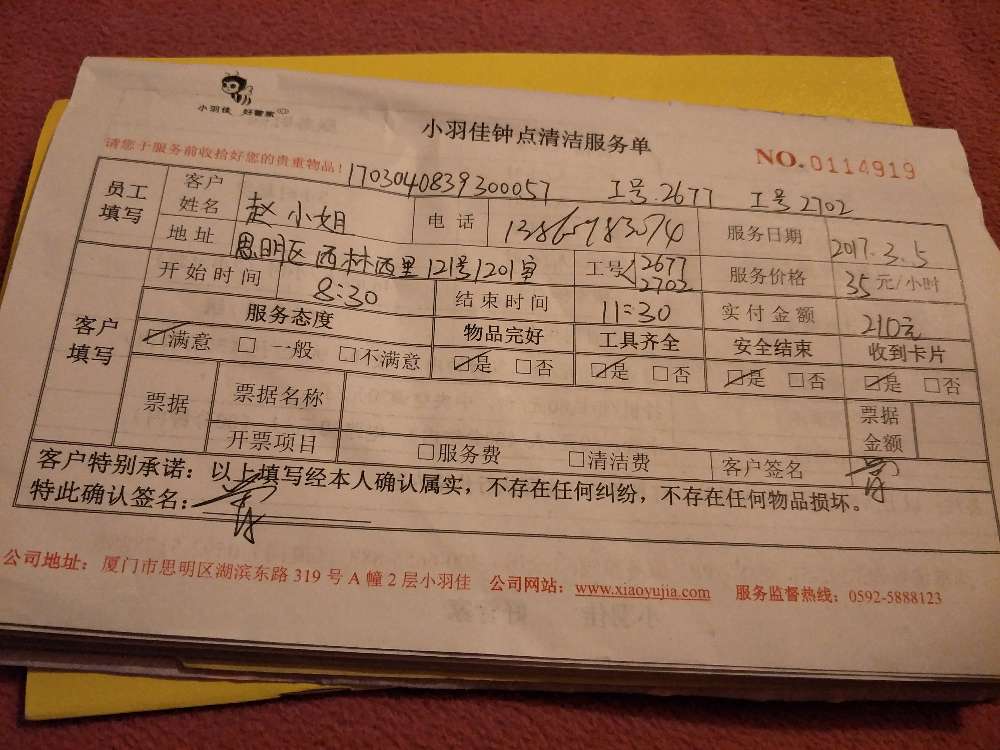 小羽佳 好管家
小羽佳钟点清洁服务单
请您于服务前收拾好您的贵重物品！ NO.0114919
1703040839300057 工号.2677 工号2702
员工填写 客户姓名 赵小姐 电话 服务日期 2017.3.5
地址 思明区西林西里121号1201室 工号 2677 2702 服务价格 35元/小时
客户填写 开始时间 8:30 结束时间 11:30 实付金额 210元
服务态度 物品完好 工具齐全 安全结束 收到卡片
☑满意 □一般 □不满意 ☑是 □否 ☑是 □否 ☑是 □否 ☑是 □否
票据 票据名称 票据金额
开票项目 □服务费 □清洁费 客户签名
客户特别承诺：以上填写经本人确认属实，不存在任何纠纷，不存在任何物品损坏。
特此确认签名：
公司地址：厦门市思明区湖滨东路319号A幢2层小羽佳 公司网站：www.xiaoyujia.com 服务监督热线：0592-5888123